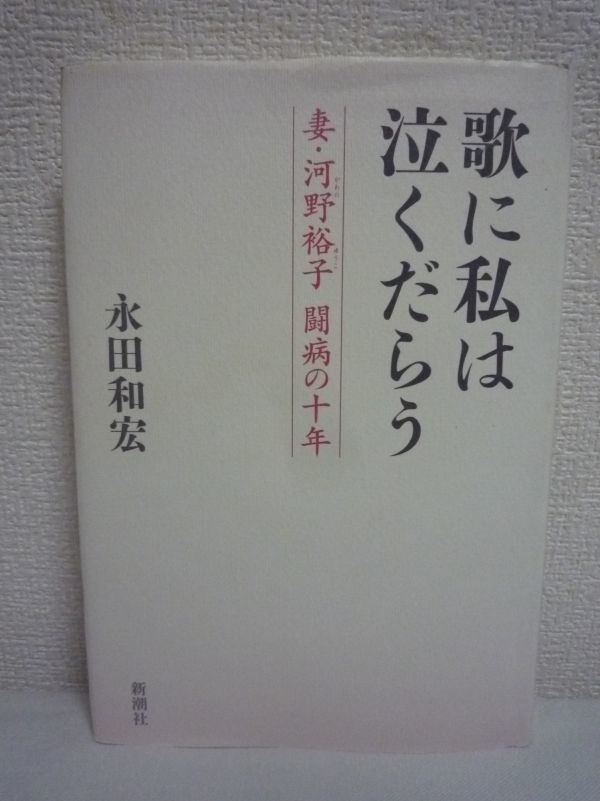 歌に私は
泣くだらう
妻・河野裕子 闘病の十年
かわの
ゆうこ
永田和宏
新潮社